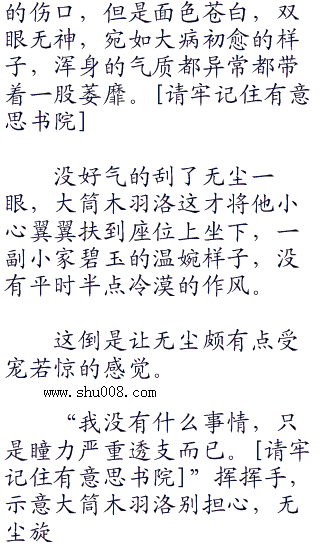 的伤口，但是面色苍白，双
眼无神，宛如大病初愈的样
子，浑身的气质都异常都带
着一股萎靡。[请牢记住有意
思书院]
没好气的刮了无尘一
眼，大筒木羽洛这才将他小
心翼翼扶到座位上坐下，一
副小家碧玉的温婉样子，没
有平时半点冷漠的作风。
这倒是让无尘颇有点受
宠若惊的感觉。
www.shu008.com
“我没有什么事情，只
是瞳力严重透支而已。[请牢
记住有意思书院]”挥挥手，
示意大筒木羽洛别担心，无
尘旋